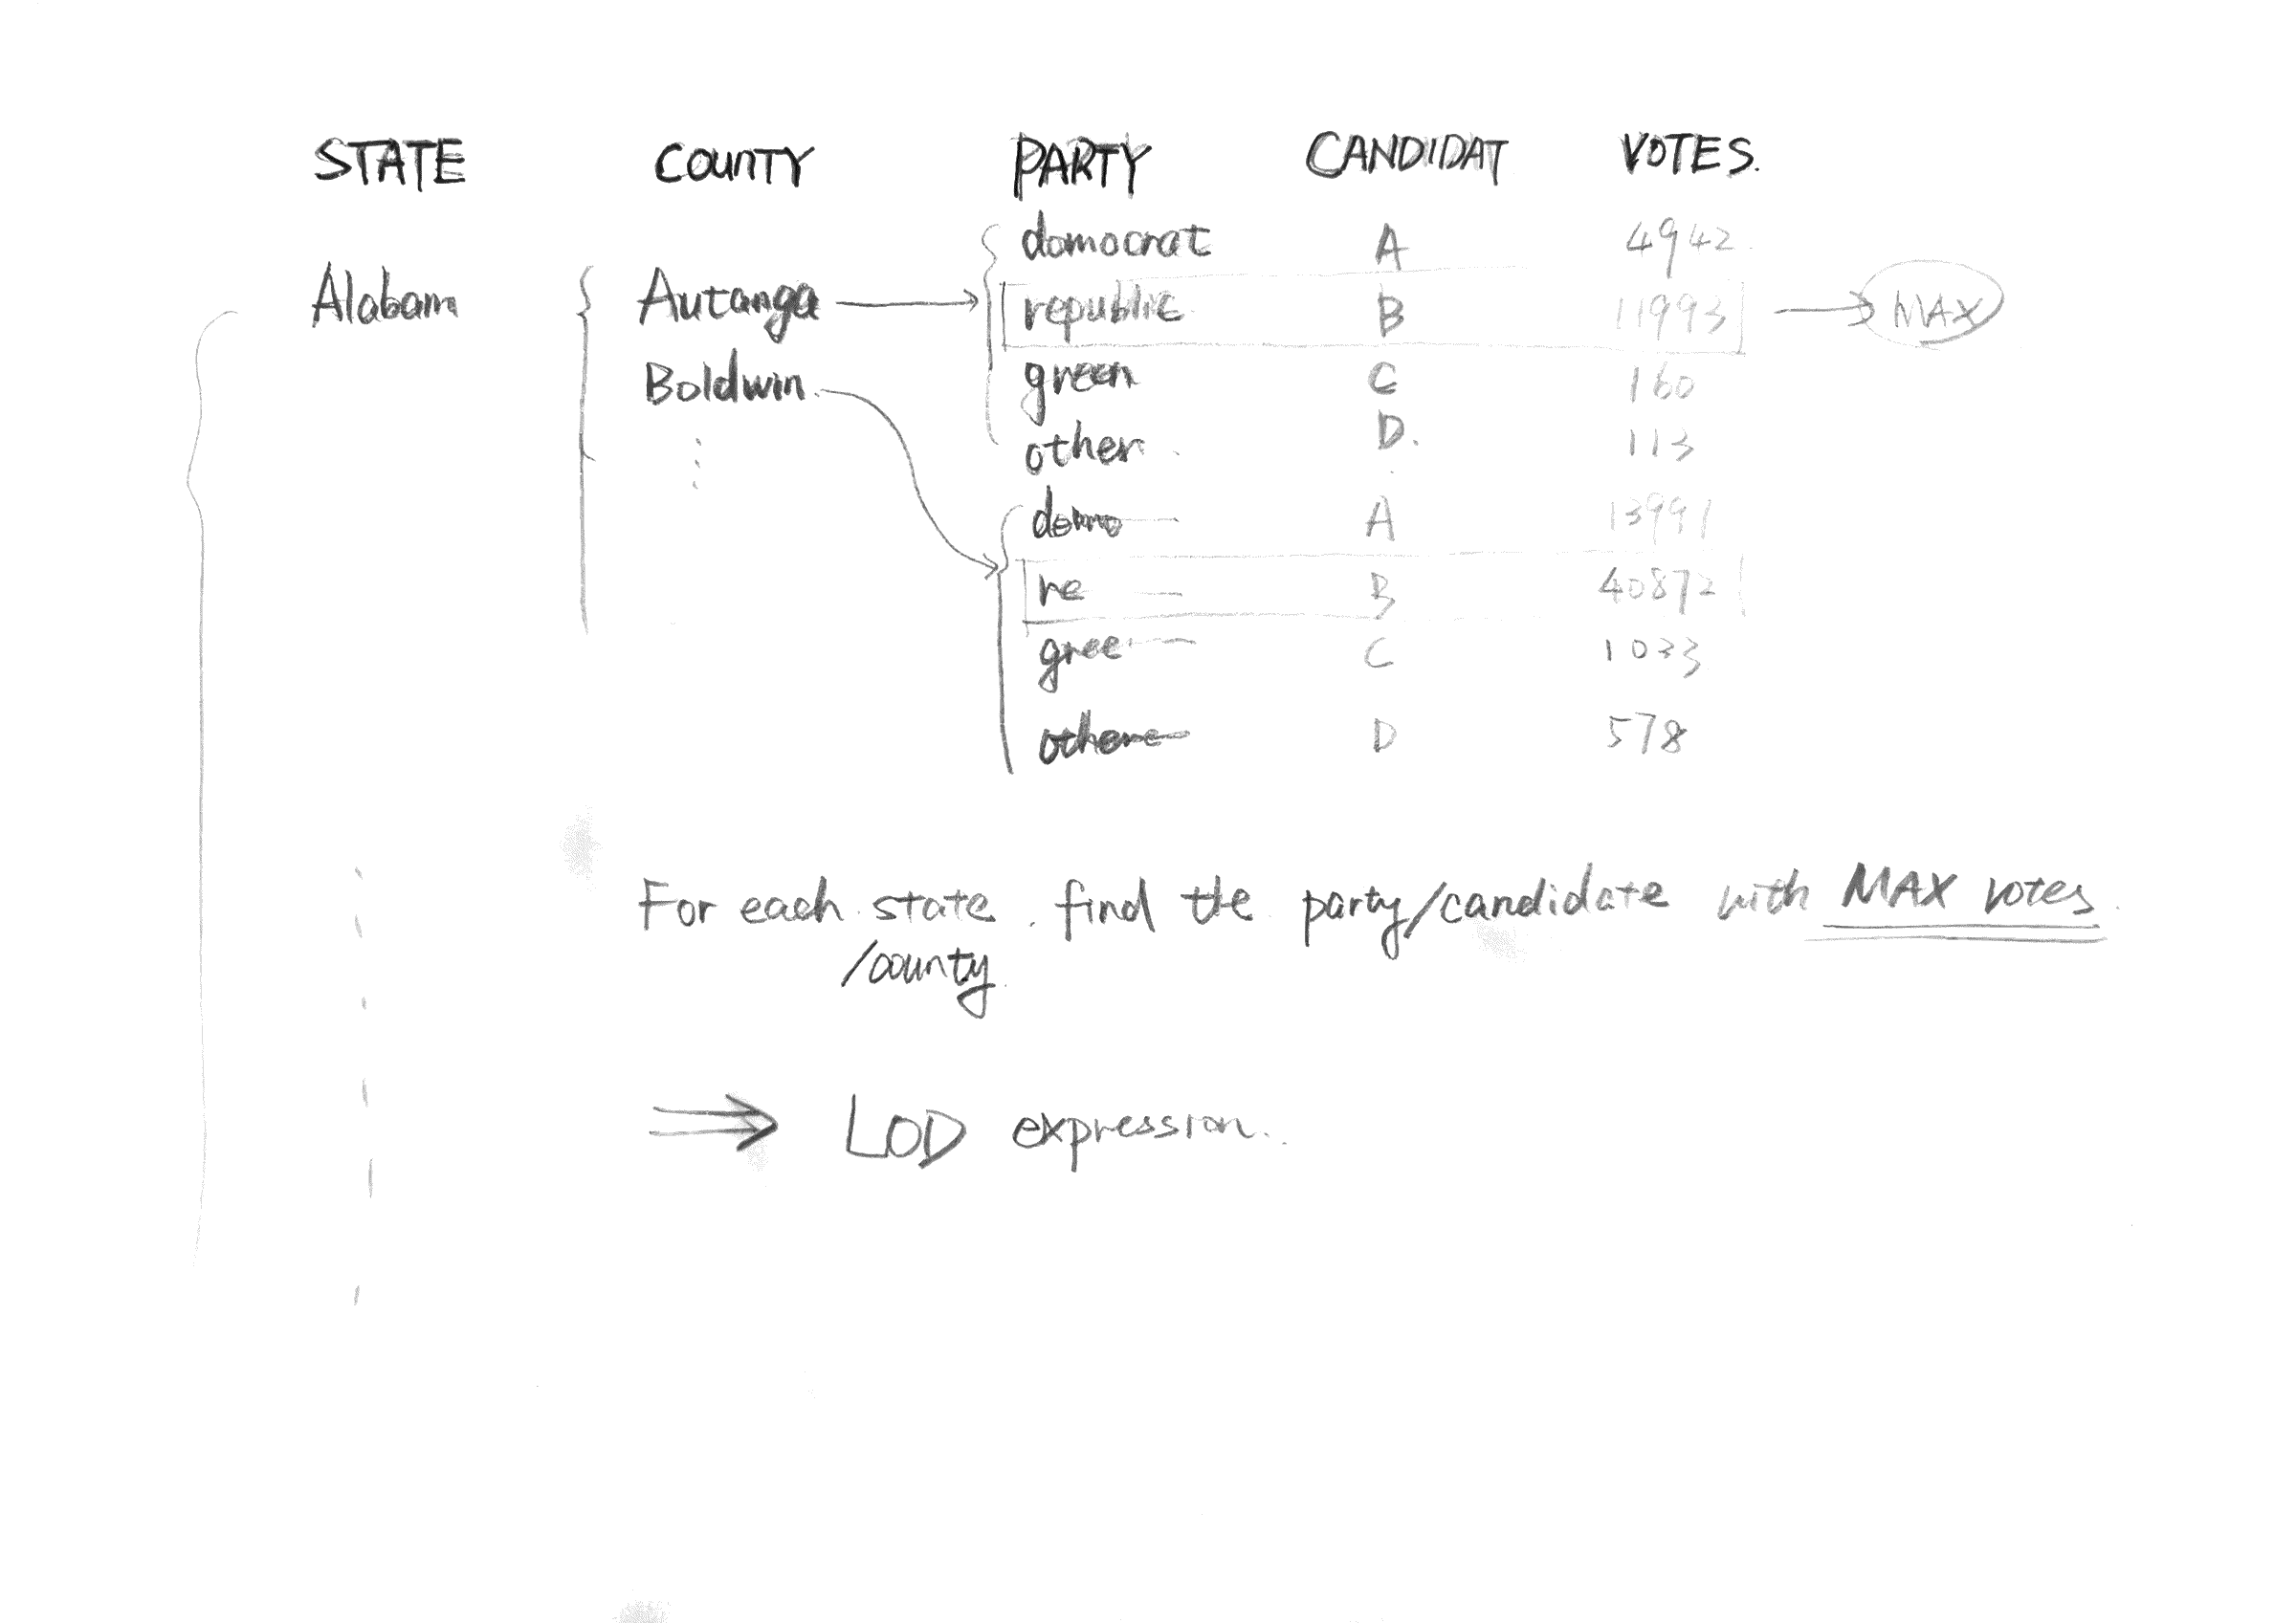 STATE COUNTY PARTY CANDIDAT VOTES.
domocrat A 4942
Alabam Autanga republic B 11993 MAX
Boldwin green C 160
other D. 113
demo A 13991
re B 40872
gree C 1033
othere D 578
For each state, find the party/candidate with MAX votes.
/county
LOD expression..